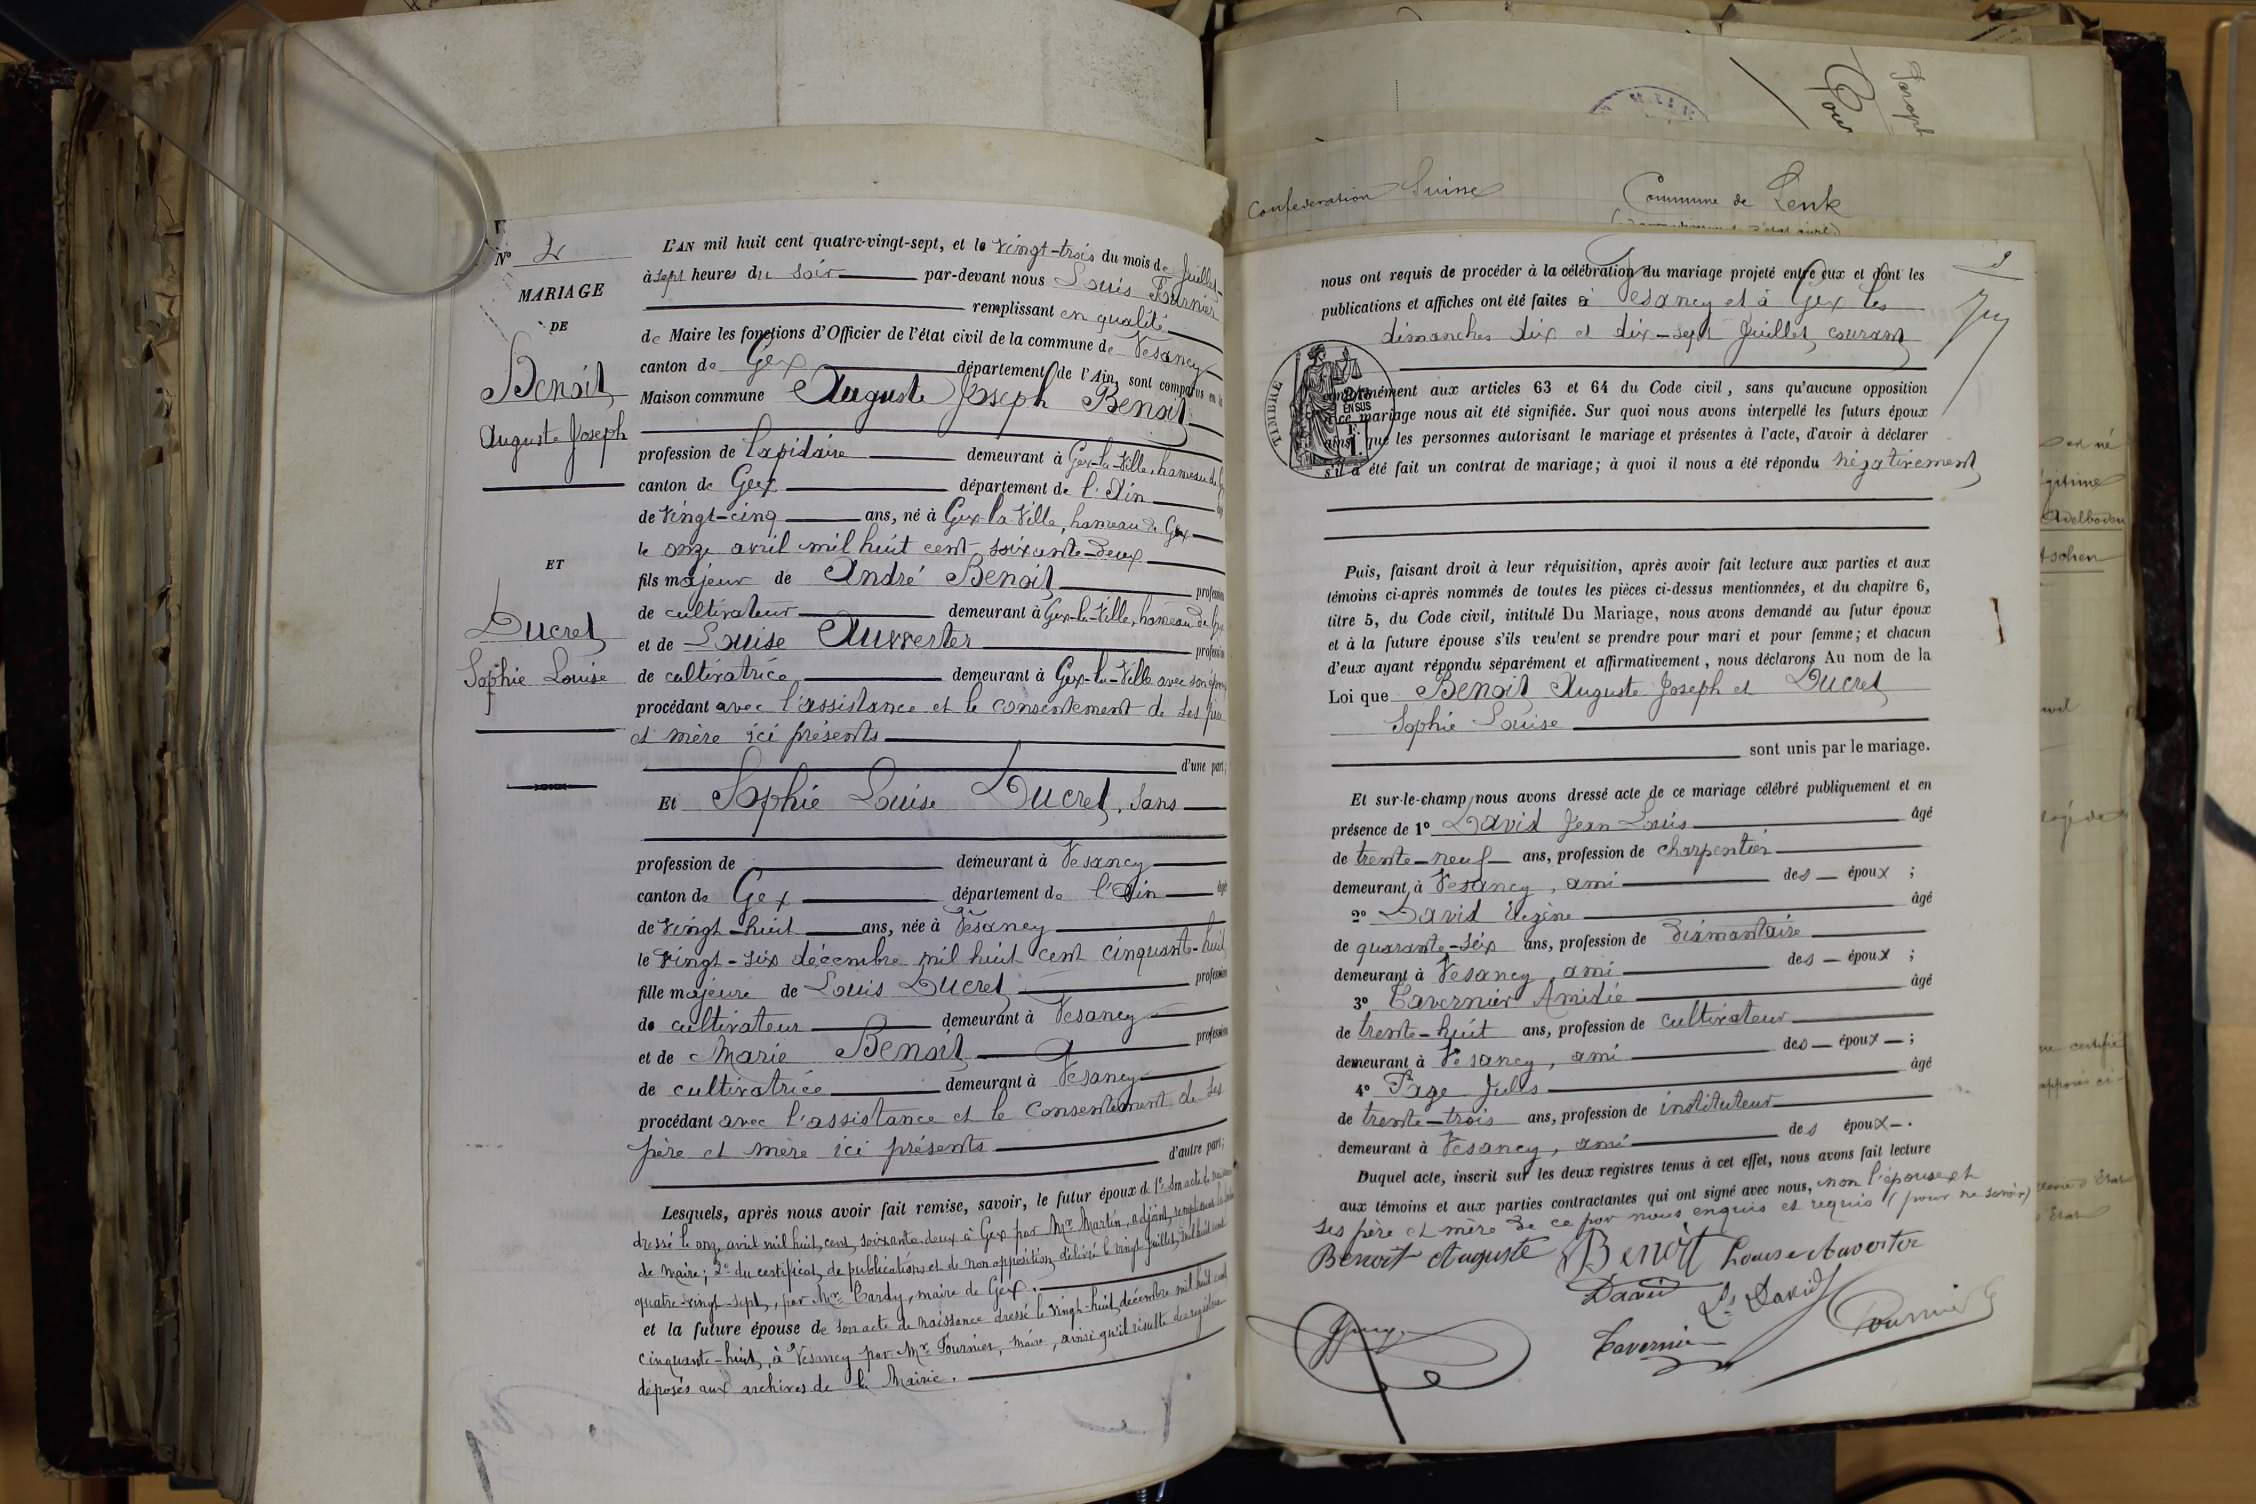 Nº 2
MARIAGE
DE
Benoit
Auguste Joseph
ET
Ducret
Sophie Louise
L'AN mil huit cent quatre-vingt-sept, et le vingt-trois du mois de Juillet
à sept heures du soir par-devant nous Louis Fournier
remplissant en qualité
de Maire les fonctions d'Officier de l'état civil de la commune de Vesancy
canton de Gex département de l'Ain, sont comparus en la
Maison commune Auguste Joseph Benoit
profession de lapidaire demeurant à Gex-la-Ville, hameau de
canton de Gex département de l'Ain
de vingt-cinq ans, né à Gex-la-Ville, hameau de Gex
le onze avril mil huit cent soixante-deux
fils majeur de André Benoit profession
de cultivateur demeurant à Gex-la-Ville, hameau de Gex
et de Louise Auverter profession
de cultivatrice demeurant à Gex-la-Ville avec son époux
procédant avec l'assistance et le consentement de ses père
et mère ici présents
d'une part;
Et Sophie Louise Ducret, sans
profession de demeurant à Vesancy
canton de Gex département de l'Ain âgé
de vingt-huit ans, née à Vesancy
le vingt-six décembre mil huit cent cinquante-huit
fille majeure de Louis Ducret profession
de cultivateur demeurant à Vesancy
et de Marie Benoit profession
de cultivatrice demeurant à Vesancy
procédant avec l'assistance et le consentement de ses
père et mère ici présents
d'autre part;
Lesquels, après nous avoir fait remise, savoir, le futur époux de 1º son acte de naissance
dressé le onze avril mil huit cent soixante-deux à Gex par Mr Martin, adjoint, remplissant les
de Maire; 2º du certificat de publications et de non opposition délivré le vingt Juillet, mil huit cent
quatre-vingt-sept, par Mr Tardy, maire de Gex.
et la future épouse de son acte de naissance dressé le vingt-huit décembre mil huit cent
cinquante-huit, à Vesancy par Mr Fournier, maire, ainsi qu'il résulte des registres
déposés aux archives de la Mairie.
Joseph
Pour
Confédération Suisse Commune de Lenk
nous ont requis de procéder à la célébration du mariage projeté entre eux et dont les
publications et affiches ont été faites à Vesancy et à Gex les
dimanches dix et dix-sept Juillet courant
TIMBRE
EN SUS
conformément aux articles 63 et 64 du Code civil, sans qu'aucune opposition
à ce mariage nous ait été signifiée. Sur quoi nous avons interpellé les futurs époux
ainsi que les personnes autorisant le mariage et présentes à l'acte, d'avoir à déclarer
s'il a été fait un contrat de mariage; à quoi il nous a été répondu négativement
Puis, faisant droit à leur réquisition, après avoir fait lecture aux parties et aux
témoins ci-après nommés de toutes les pièces ci-dessus mentionnées, et du chapitre 6,
titre 5, du Code civil, intitulé Du Mariage, nous avons demandé au futur époux
et à la future épouse s'ils veulent se prendre pour mari et pour femme; et chacun
d'eux ayant répondu séparément et affirmativement, nous déclarons Au nom de la
Loi que Benoit Auguste Joseph et Ducret
Sophie Louise
sont unis par le mariage.
Et sur-le-champ nous avons dressé acte de ce mariage célébré publiquement et en
présence de 1º David Jean Louis âgé
de trente-neuf ans, profession de charpentier
demeurant à Vesancy, ami des époux;
2º David Eugène âgé
de quarante-six ans, profession de diamantaire
demeurant à Vesancy, ami des époux;
3º Tavernier Amédée âgé
de trente-huit ans, profession de cultivateur
demeurant à Vesancy, ami des époux;
4º Page Jules âgé
de trente-trois ans, profession de instituteur
demeurant à Vesancy, ami des époux.
Duquel acte, inscrit sur les deux registres tenus à cet effet, nous avons fait lecture
aux témoins et aux parties contractantes qui ont signé avec nous, non l'épouse et
ses père et mère de ce par nous enquis et requis (pour ne savoir)
Benoit Auguste Benoit Louise Aavorter
David Ls David
Tavernier Fournier
est né
légitime
Adelboden
certifié